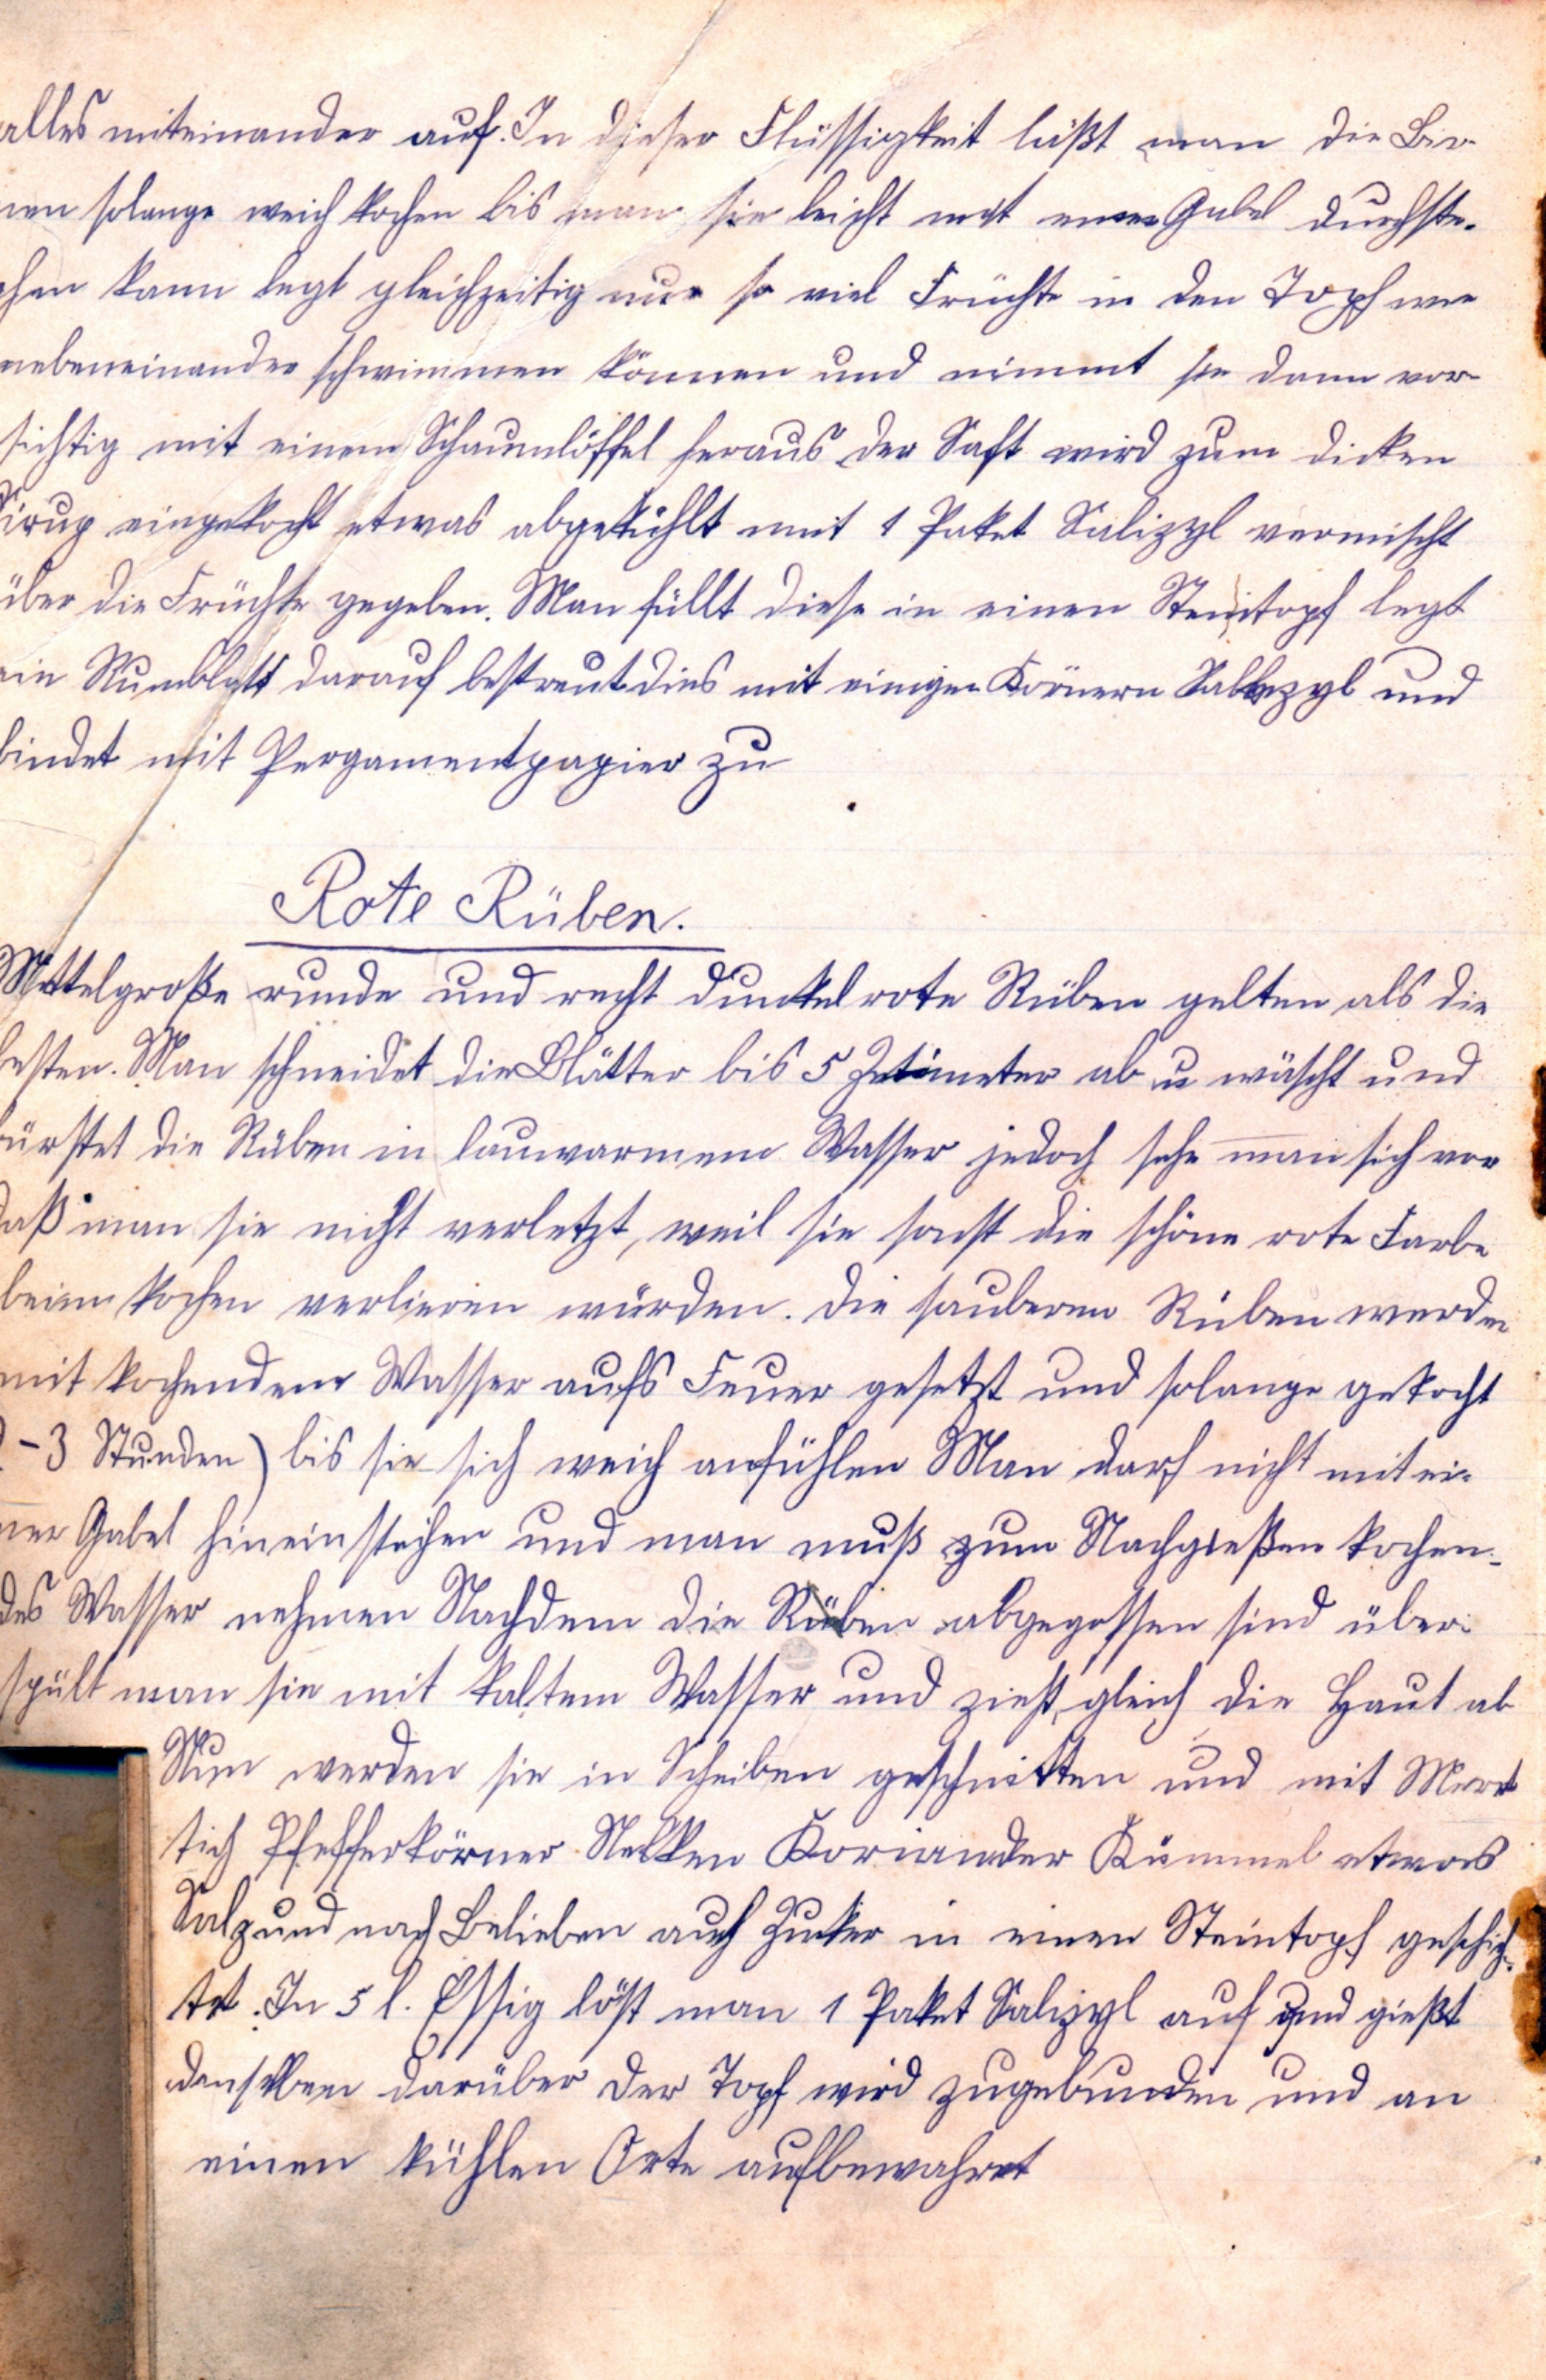 alles miteinander auf. In dieser Flüssigkeit läßt man die Bir-
nen solange weich kochen bis man sie leicht mit einer Gabel durchste-
chen kann legt gleichzeitig nur so viel Früchte in den Topf wie
nebeneinander schwimmen können und nimmt sie dann vor-
sichtig mit einem Schaumlöffel heraus der Saft wird zum dicken
Sirup eingekocht etwas abgekühlt mit 1 Paket Salizyl vermischt
über die Früchte gegeben. Man füllt diese in einen Steintopf legt
ein Rumblatt darauf bestreut dies mit einigen Körnern Salizyl und
bindet mit Pergamentpapier zu
Rote Rüben.
Mittelgroße runde und recht dunkelrote Rüben gelten als die
besten. Man schneidet die Blätter bis 5 Zetimeter ab u wäscht und
bürstet die Rüben in lauwarmem Wasser jedoch sehe man sich vor
daß man sie nicht verletzt, weil sie sonst die schöne rote Farbe
beim kochen verlieren würden. Die sauberen Rüben werden
mit kochendem Wasser aufs Feuer gesetzt und solange gekocht
-3 Stunden) bis sie sich weich anfühlen Man darf nicht mit ei-
ner Gabel hineinstechen und man muß zum Nachgießen kochen-
des Wasser nehmen Nachdem die Rüben abgegossen sind über-
spült man sie mit kaltem Wasser und zieht gleich die Haut ab
Nun werden sie in Scheiben geschnitten und mit Meret
tich Pfefferkörner Nelken Koriander Kümmel etwas
Salz und nach Belieben auch Zucker in einen Steintopf geschich-
tet. In 5 l. Essig löst man 1 Paket Salizyl auf und gießt
denselben darüber der Topf wird zugebunden und an
einen kühlen Orte aufbewahret